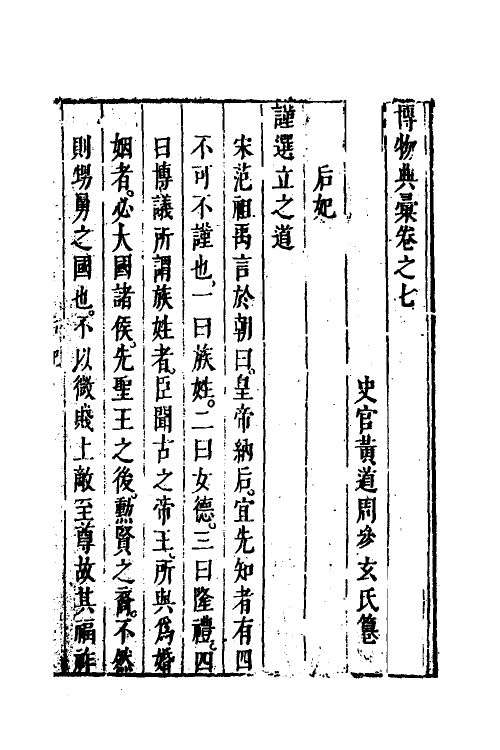 博物典彙卷之七
史官黃道周參玄氏纂
后妃
謹選立之道
宋范祖禹言於朝曰。皇帝納后。宜先知者有四
不可不謹也。一曰族姓。二曰女德。三曰隆禮。四
曰博議所謂族姓者。臣聞古之帝王。所與爲婚
姻者。必大國諸侯。先聖王之後。勳賢之裔。不然
則甥舅之國也。不以微賤上敵至尊故其福祚